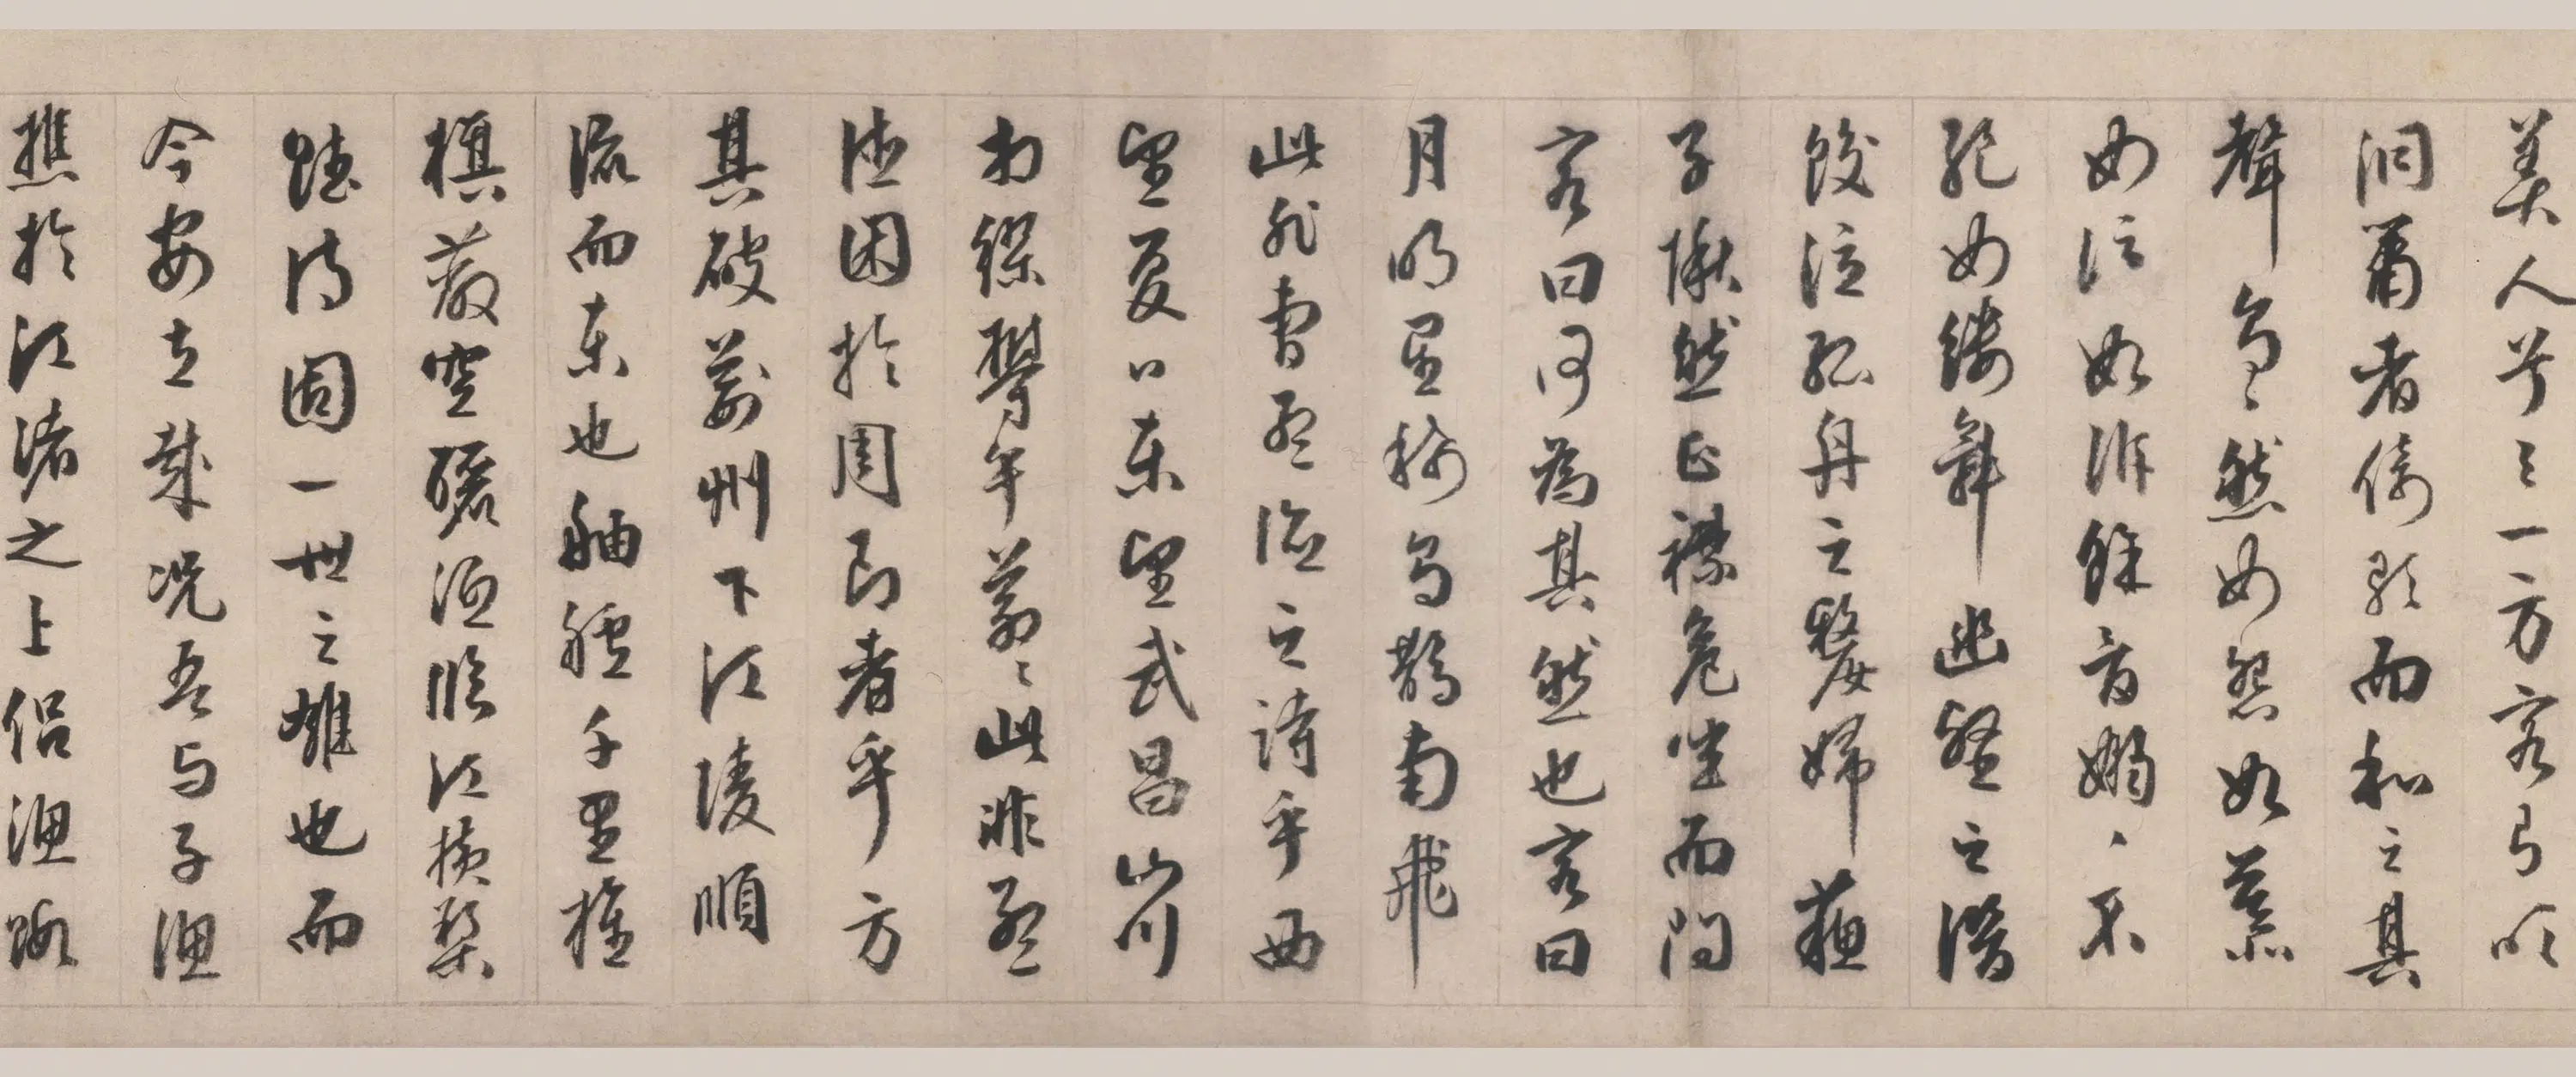 美人兮天一方客有吹
洞簫者倚歌而和之其
聲烏〻然如怨如慕
如泣如訴餘音嫋〻不
絕如縷舞幽壑之潛
蛟泣孤舟之嫠婦蘇
子愀然正襟危坐而問
客曰何為其然也客曰
月明星稀烏鵲南飛
此非曹孟德之詩乎西
望夏口東望武昌山川
相繆鬱乎蒼〻此非孟
德困於周郎者乎方
其破荊州下江陵順
流而東也舳艫千里旌
旗蔽空釃酒臨江橫槊
賦詩固一世之雄也而
今安在哉況吾与子漁
樵於江渚之上侶漁蝦